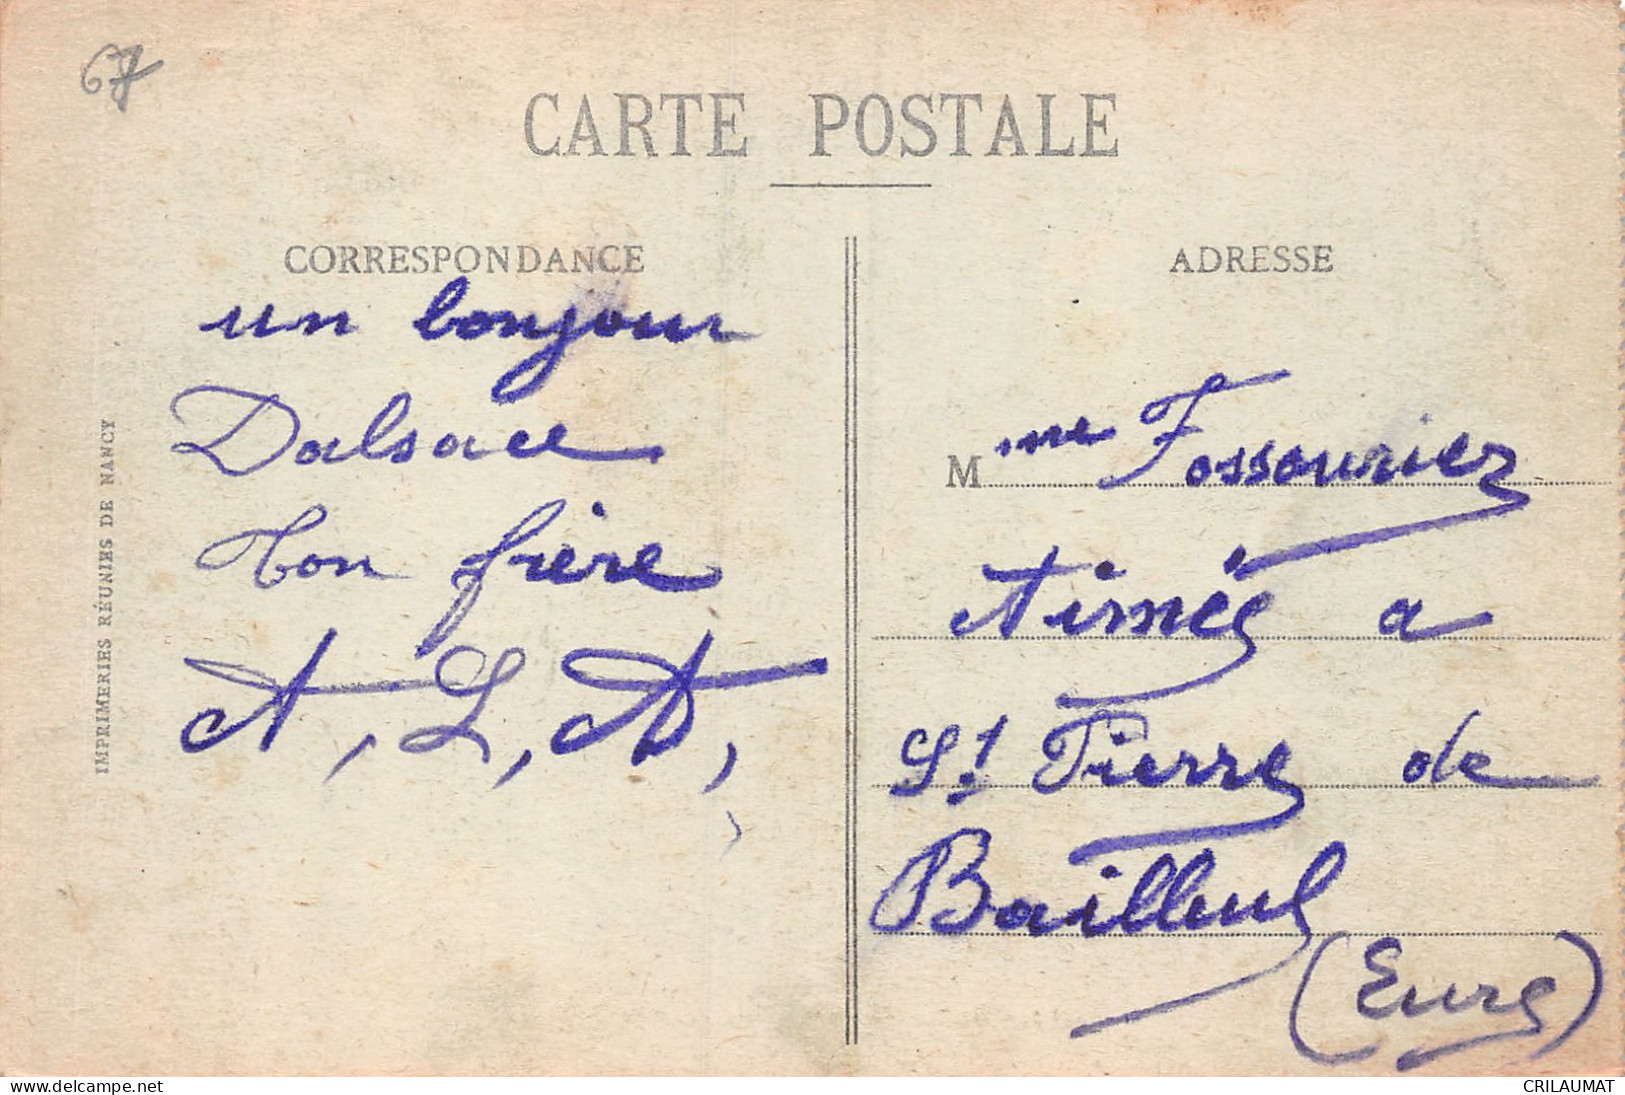 67
CARTE POSTALE
CORRESPONDANCE
un bonjour
Dalsace
Ton frère
A, L, A,
IMPRIMERIES RÉUNIES DE NANCY
ADRESSE
Mme Fossouriez
Aimée a
St Pierre de
Bailleul
(Eure)
www.delcampe.net
CRILAUMAT